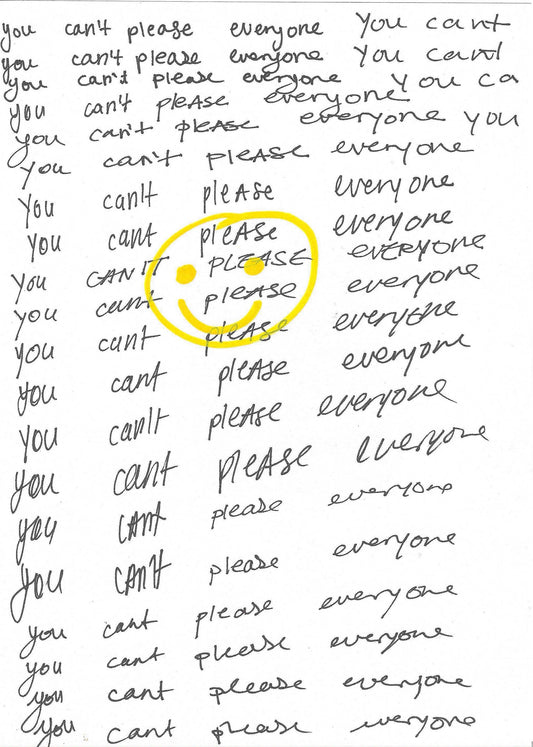 you can't please everyone You cant
you can't please everyone You cant
you can't please everyone You ca
you can't pleAse everyone
you can't pleAse everyone you
you can't pleAse everyone
you can't pleAse everyone
you cant pleAse everyone
you CAN'T PLEASE EVERYONE
you cant pleAse everyone
you cant pleAse everyone
you cant pleAse everyone
you can't pleAse everyone
you cant pleAse everyone
you CANt please everyone
you CAN't please everyone
you cant please everyone
you cant please everyone
you cant please everyone
you cant please everyone